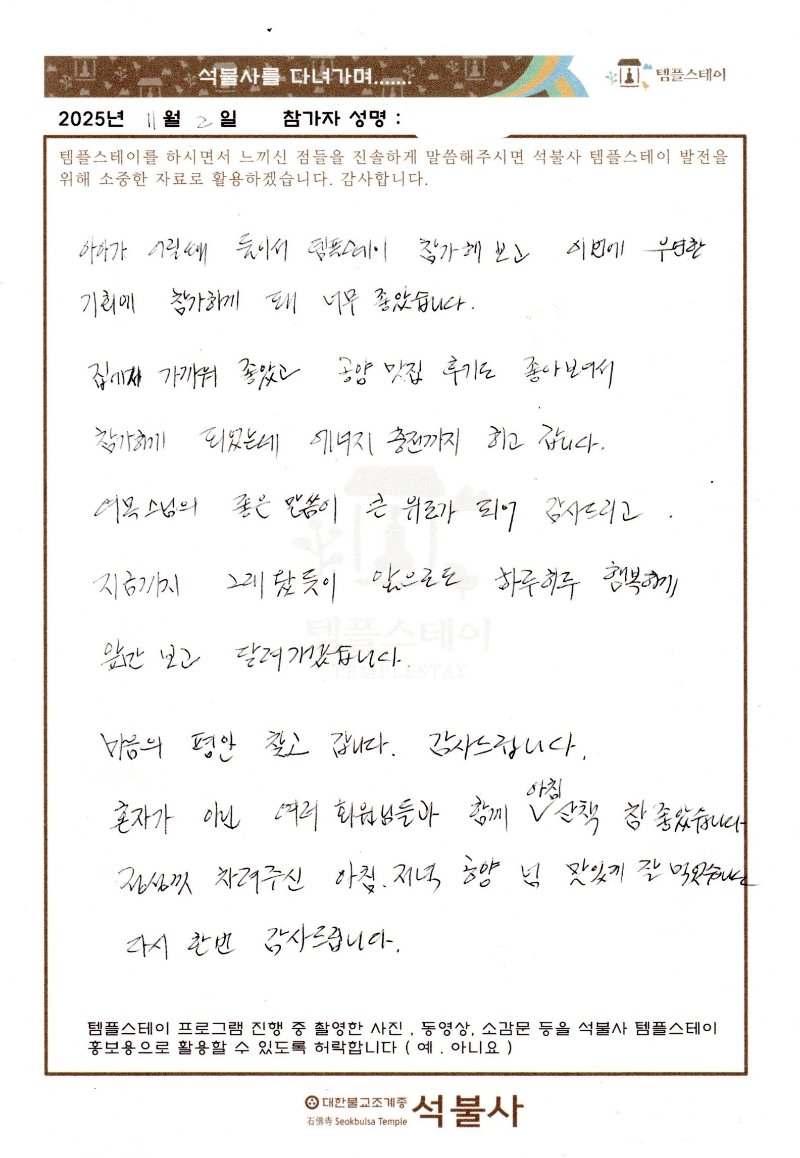 석불사를 다녀가며.......
템플스테이
2025년 11월 2일 참가자 성명 :
템플스테이를 하시면서 느끼신 점들을 진솔하게 말씀해주시면 석불사 템플스테이 발전을
위해 소중한 자료로 활용하겠습니다. 감사합니다.
아아가 어릴때 들어서 템플스테이 참가해 보고 이번에 우연한
기회에 참가하게 돼 너무 좋았습니다.
집에서 가까워 좋았고 공양 맛집 후기도 좋아보여서
참가하게 되었는데 에너지 충전까지 하고 갑니다.
여목스님의 좋은 말씀이 큰 위로가 되어 감사드리고.
지금까지 그래 왔듯이 앞으로도 하루하루 행복하게
앞만 보고 달려가겠습니다.
템플스테이
TEMPLESTAY
마음의 평안 찾고 갑니다. 감사드립니다.
혼자가 아닌 여러 회원님들과 함께 아침 산책 참 좋았습니다
정성껏 차려주신 아침.저녁 공양 넘 맛있게 잘 먹었습니다
다시 한번 감사드립니다.
템플스테이 프로그램 진행 중 촬영한 사진 , 동영상, 소감문 등을 석불사 템플스테이
홍보용으로 활용할 수 있도록 허락합니다 ( 예 . 아니요 )
대한불교조계종 석불사
石佛寺 Seokbulsa Temple